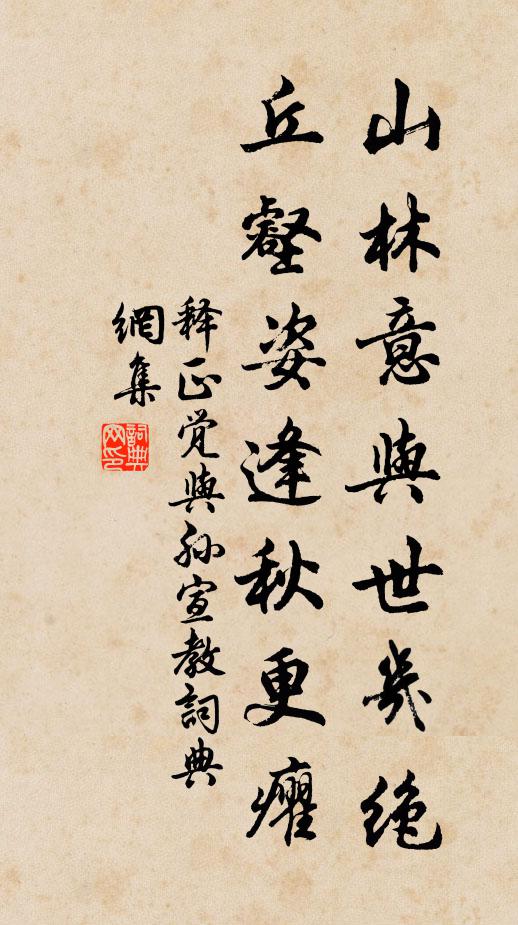 山林意與世幾绝
丘壑姿逢秋更癯
释正觉與孙宣教詞典
網集
詞典網印